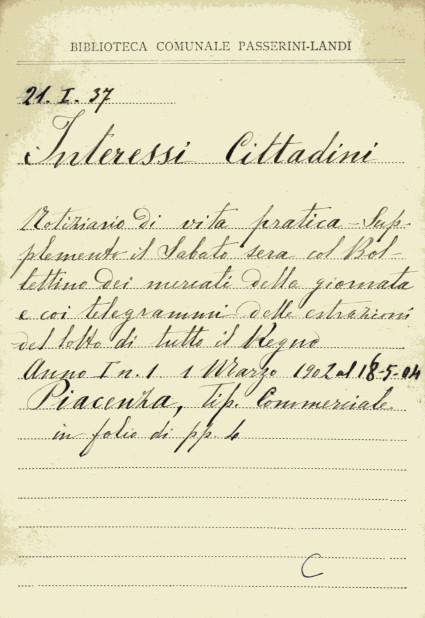 BIBLIOTECA COMUNALE PASSERINI-LANDI
21. I. 37
Interessi Cittadini
Notiziario di vita pratica - Sup-
plemento il Sabato sera col Bol-
lettino dei mercati della giornata
e coi telegrammi delle estrazioni
del lotto di tutto il Regno
Anno I n. 1 1 Marzo 1902 al 18-5-04
Piacenza, Tip. Commerciale
in folio di pp. 4
C